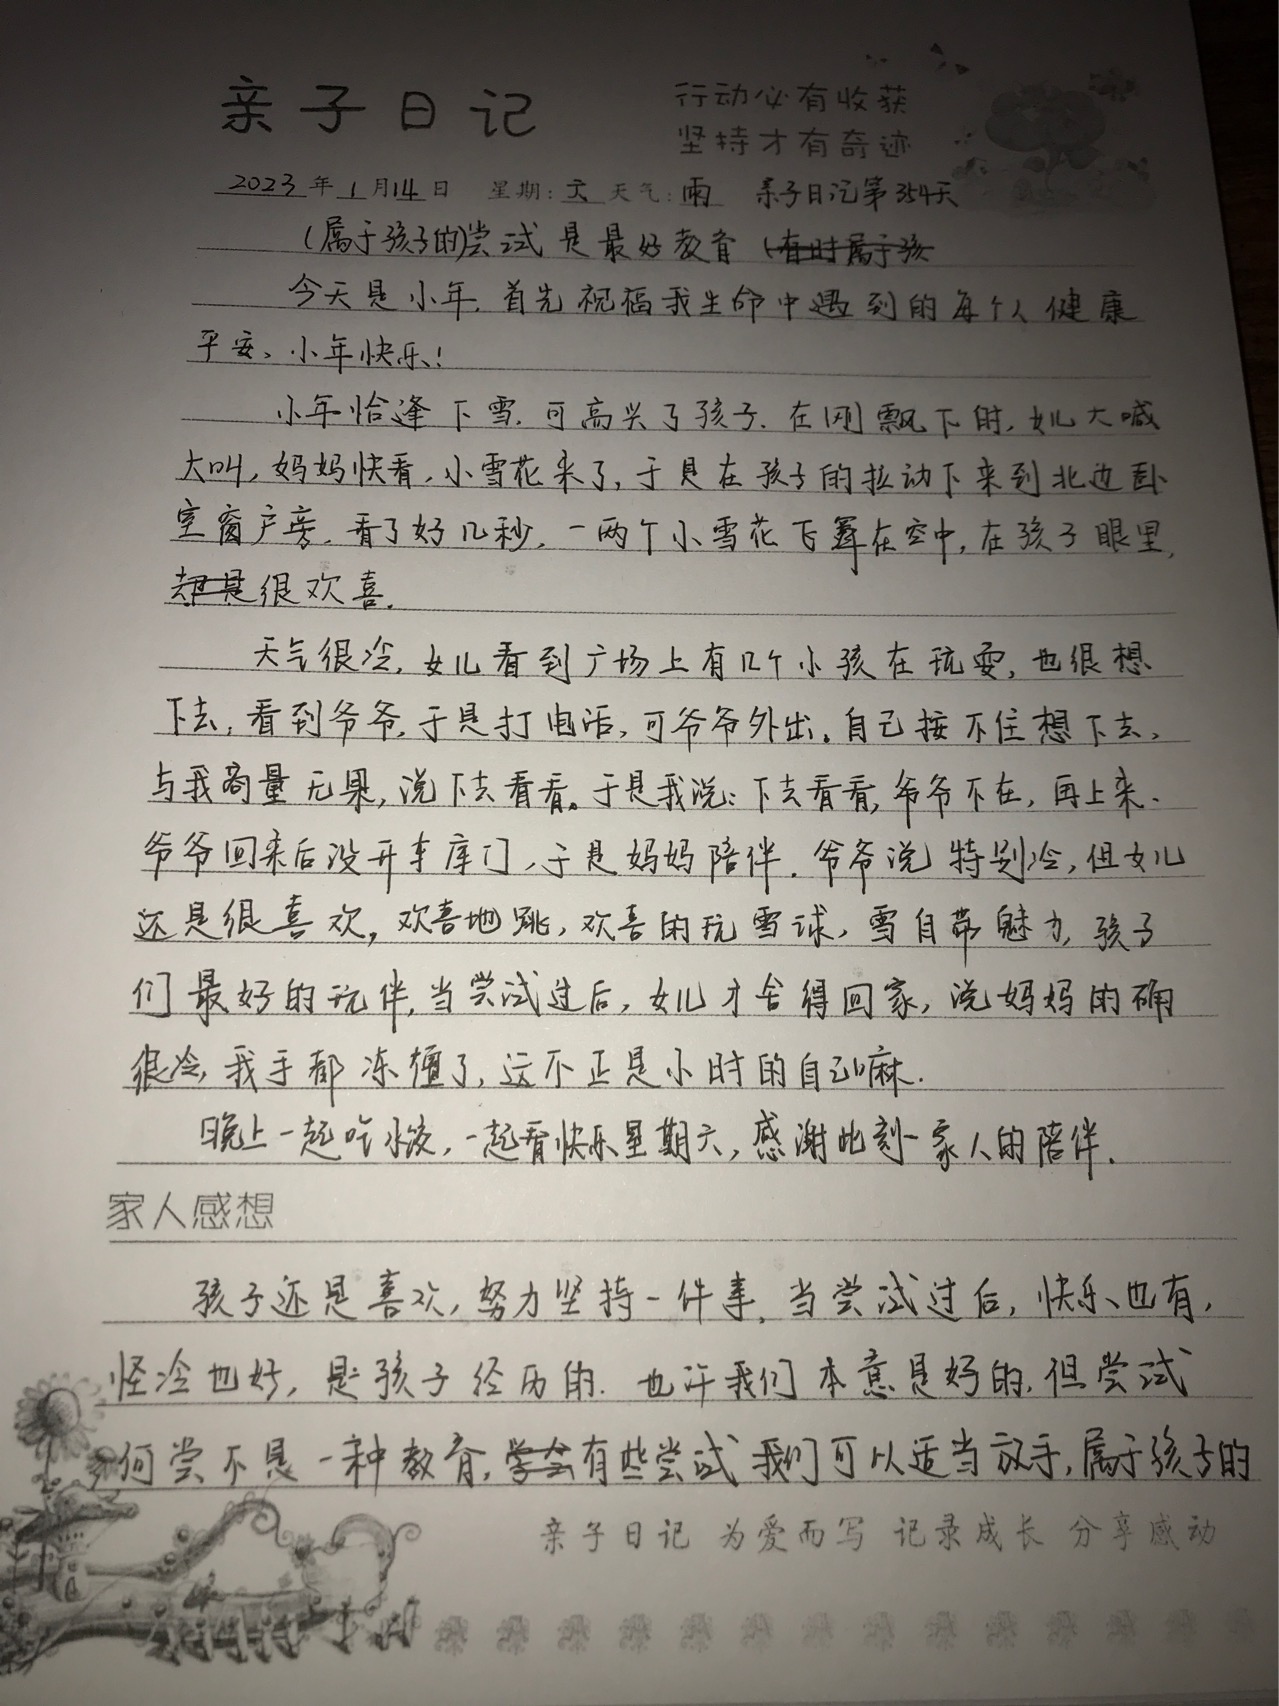 亲子日记
行动必有收获
坚持才有奇迹
2023年1月14日 星期:六 天气:雨 亲子日记第354天
(属于孩子的)尝试是最好教育(有时属于孩
今天是小年,首先祝福我生命中遇到的每个人健康
平安、小年快乐!
小年恰逢下雪,可高兴了孩子.在刚飘下时,女儿大喊
大叫,妈妈快看,小雪花来了,于是在孩子的拉动下来到北边卧
室窗户旁,看了好几秒,一两个小雪花飞舞在空中,在孩子眼里,
却是很欢喜.
天气很冷,女儿看到广场上有几个小孩在玩耍,也很想
下去,看到爷爷,于是打电话,可爷爷外出。自己按不住想下去,
与我商量无果,说下去看看。于是我说:下去看看,爷爷不在,再上来.
爷爷回来后没开车库门,于是妈妈陪伴.爷爷说特别冷,但女儿
还是很喜欢,欢喜地跳,欢喜的玩雪球,雪自带魅力,孩子
们最好的玩伴,当尝试过后,女儿才舍得回家,说妈妈的确
很冷,我手都冻僵了,这不正是小时的自己嘛.
晚上一起吃水饺,一起看快乐星期六,感谢此刻一家人的陪伴.
家人感想
孩子还是喜欢,努力坚持一件事,当尝试过后,快乐也有,
怪冷也好,是孩子经历的.也许我们本意是好的,但尝试
何尝不是一种教育,学会有些尝试我们可以适当放手,属于孩子的
亲子日记 为爱而写 记录成长 分享感动